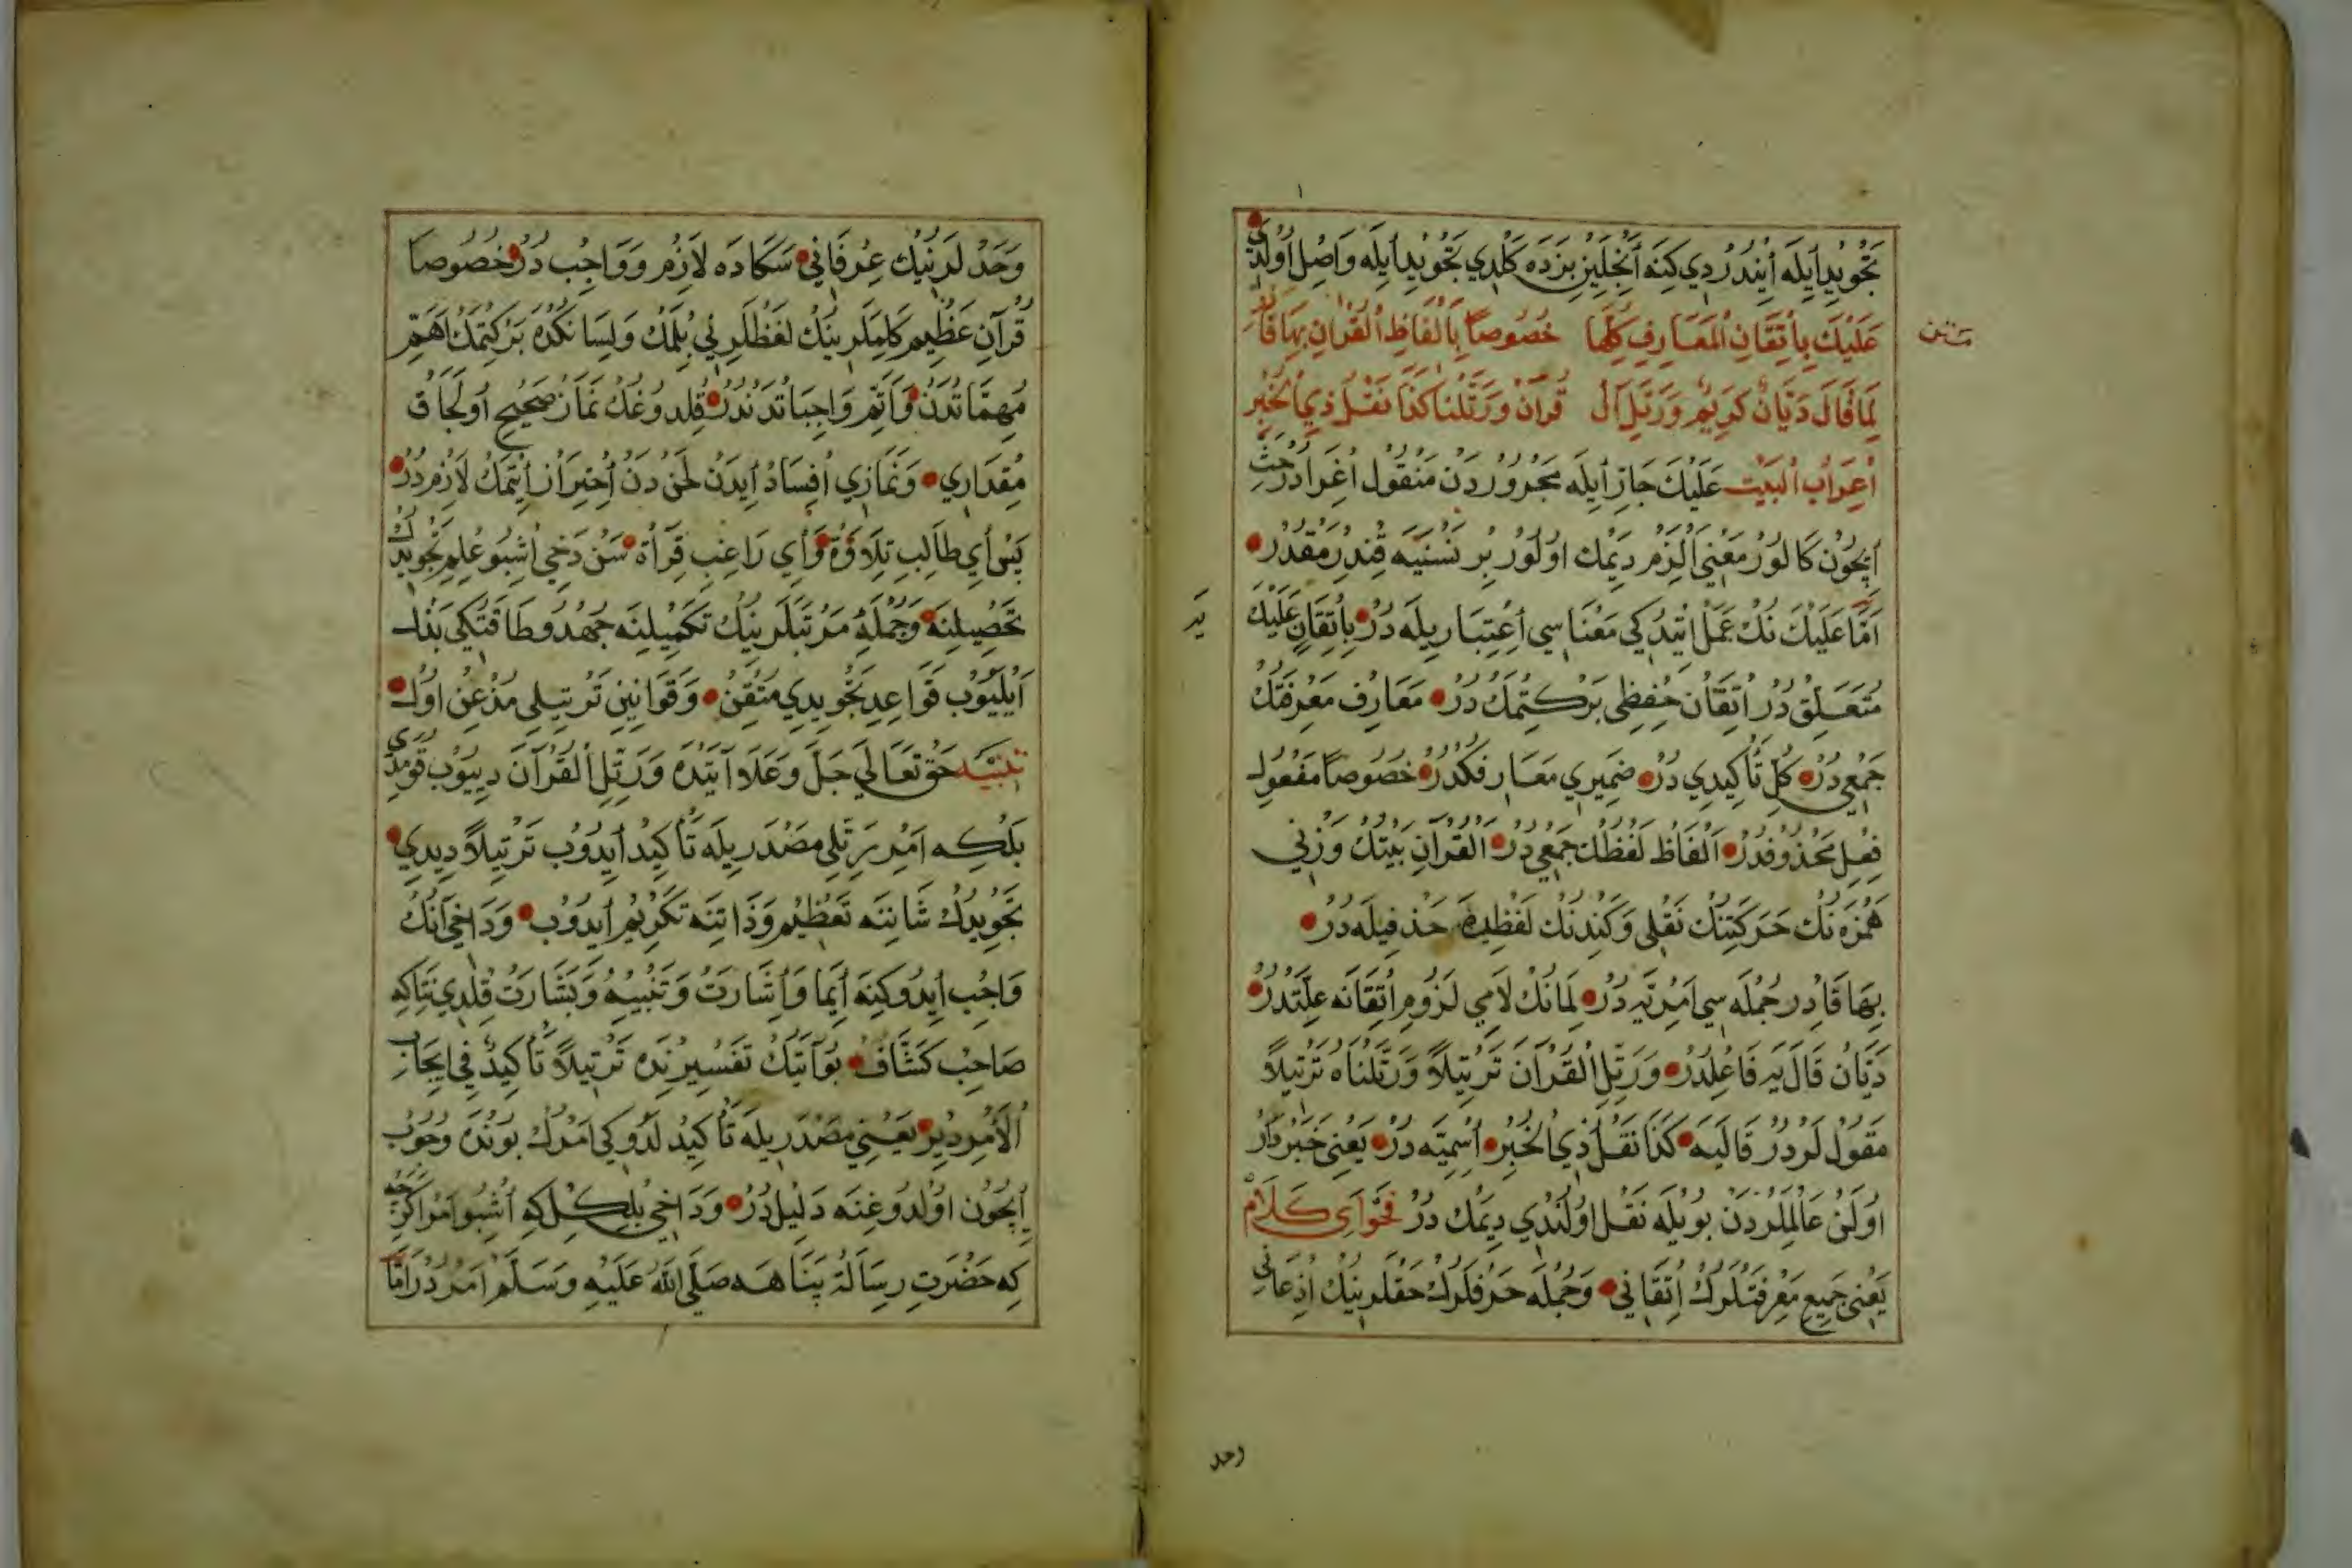 تَجْوِيدِ اَيلَه اَيِنْدُرْدِي كِنَه اَنْجِلَيِنْ بِزَدَه كَلْدِي تَجْوِيدِ اَيلَه وَاصِلْ اُولْدِي
عَلَيْكَ بِاِتْقَانِ الْمَعَارِفِ كُلِّهَا خُصُوصاً بِاَلْفَاظِ الْقُرَانِ بِهَا قَادِرْ
متن
لِمَا قَالَ دَيَّانٌ كَرِيمٌ وَرَتِّلِ الْ قُرآنَ وَرَتَّلْنَا كَذَا نَقْلُ ذِي الْخُبْرِ
اِعْرَابُ الْبَيْتِ عَلَيْكَ جَارْ اَيلَه مَجْرُورْدَنْ مَنْقُولْ اِغْرَادُرْ حَثْ
اِيچُونْ كَالُورْ مَعْنِي اَلْزِمْ دِيمَك اُولُورْ بِرْ نَسْنَيَه قِنْدِرْمَقْدُرْ
اَمَّا عَلَيْكَ نِكْ عَمَلْ اِتْدِكِي مَعْنَاسِي اِعْتِبَارِيلَه دُرْ بِاِتْقَانِ عَلَيْكَيَه
مُتَعَلِّقْ دُرْ اِتْقَانْ حِفْظِي بَرْكِتْمَكْ دُرْ مَعَارِفْ مَعْرِفَتِكْ
جَمْعِي دُرْ كُلْ تَأْكِيدِي دُرْ ضَمِيرِي مَعَارِفَكَدُرْ خُصُوصاً مَفْعُولِ
فِعْلِ مَحْذُوفْدُرْ اَلْفَاظْ لَفْظُكْ جَمْعِي دُرْ الْقُرَانِ بَيْتِكْ وَزْنِي
هَمْزَه نِكْ حَرَكَتِنِكْ نَقْلِي وَكَنْدِنِكْ لَفْظِدَه حَذْفِيلَه دُرْ
بِهَا قَادِرْ جُمْلَه سِي اَمْرِيَّه دُرْ لِمَانِكْ لَامِي لُزُومِ اِتْقَانَه عِلَّتْدُرْ
دَيَّانْ قَالَ يَه فَاعِلْدُرْ وَرَتِّلِ الْقُرْآنَ تَرْتِيلاً وَرَتَّلْنَاهُ تَرْتِيلاً
مَقُولْ لَرْدُرْ قَالَيَه كَذَا نَقْلُ ذِي الْخُبْرِ اِسْمِيَّه دُرْ يَعْنِي خَبَرْدَارْ
اُولَنْ عَالِمْلَرْدَنْ بُويلَه نَقْلْ اُولُنْدِي دِيمَكْ دُرْ فَحْوَاىِ كَلَامْ
يَعْنِي جَمِيعِ مَعْرِفَتْلَرِكْ اِتْقَانِي وَجُمْلَه حَرْفلَرِكْ حَقْلَرِينِكْ اِذْعَانِي
وحد
وَحَدْلَرِنِيكْ عِرْفَانِي سَكَادَه لَازِمْ وَوَاجِبْ دُرْ خُصُوصاً
قُرْآنِ عَظِيمِ كَلِمَلَرِينِكْ لَفْظْلَرِنِي بِلْمَكْ وَلِسَانِكْدَه بَرْكِتْمَكْ اَهَمِّ
مُهِمَّاتْدَنْ وَاَتَمِّ وَاجِبَاتْدَنْدُرْ قِلْدُوغُكْ نَمَازْ صَحِيحْ اُولَجَاقْ
مِقْدَارِي وَنَمَازِي اِفْسَادْ اَيدَنْ لَحْنْ دَنْ اِحْتِرَازْ اَيتْمَكْ لَازِمْ دُرْ
پَسْ اَي طَالِبِ تِلَاوَةْ وَاَي رَاغِبِ قِرَأَةْ سَنْ دَخِي اُشْبُو عِلْمِ تَجْوِيدِكْ
تَحْصِيلِنَه وَجُمْلَه مَرْتَبَلَرِينِكْ تَكْمِيلِنَه جُهْدُ وطَاقَتِكِي بَذْلْ
اَيْلَيُوبْ قَوَاعِدِ تَجْوِيدِي مُتْقِنْ وَقَوَانِينِ تَرْتِيلِي مُذْعِنْ اُولْ
تَنْبِيه حَقْ تَعَالَي جَلَّ وَعَلَا آيَتِنْدَه وَرَتِّلِ الْقُرْآنَ دِيُيوبْ قُومَدِي
بَلْكِه اَمْرِ رَتِّلِي مَصْدَرِيلَه تَأْكِيدْ اَيدُوبْ تَرْتِيلاً دِيدِي
تَجْوِيدِكْ شَانِنَه تَعْظِيمْ وَذَاتِنَه تَكْرِيمْ اَيدُوبْ وَدَاخِي اَنُكْ
وَاجِبْ اَيدُوكِنَه اَيمَا وَاِشَارَتْ وَتَنْبِيهْ وَبَشَارَتْ قِلْدِي نِتَاكِه
صَاحِبْ كَشَّافْ بُو آيَتِكْ تَفْسِيرِنْدَه تَرْتِيلاً تَأْكِيدٌ فِي اِيجَابِ
الْاَمْرِ دِيرْ يَعْنِي مَصْدَرِيلَه تَأْكِيدْ لَدُوكِي اَمْرِكْ بُونْدَه وُجُوبْ
اِيچُونْ اُولْدُوغِنَه دَلِيلْ دُرْ وَدَاخِي بِلْكِلْ كِه اُشْبُو اَمْرْ اَكَرْچِه
كِه حَضْرَتِ رِسَالَةْ پَنَاهَه صَلَّي اللّٰهُ عَلَيْهِ وَسَلَّمْ اَمْرْدُرْ اَمَّا